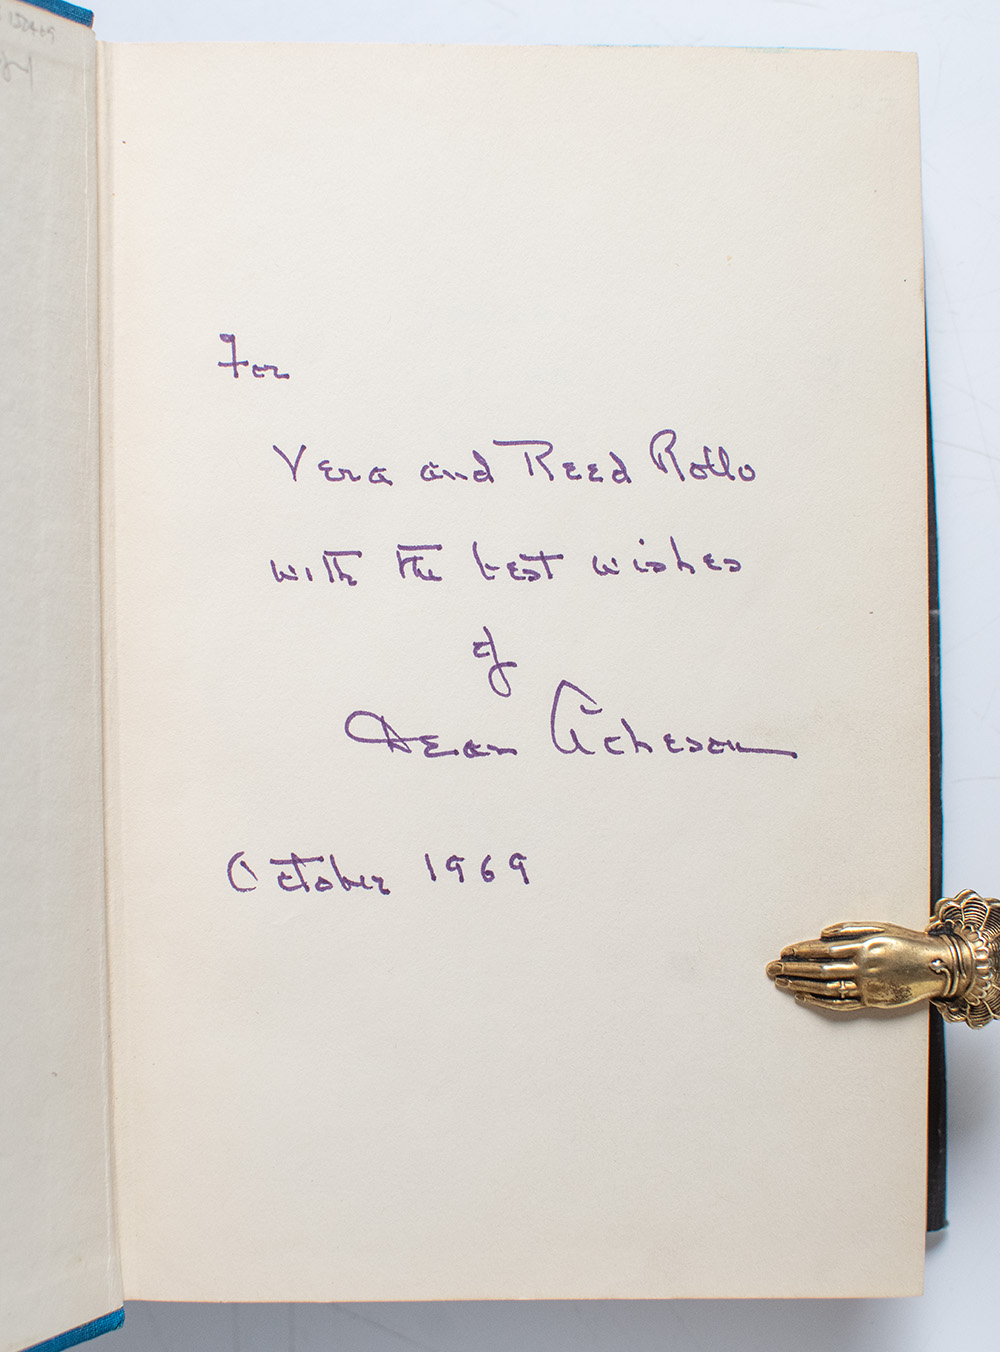 For
Vera and Reed Rollo
with the best wishes
of
Dean Acheson
October 1969